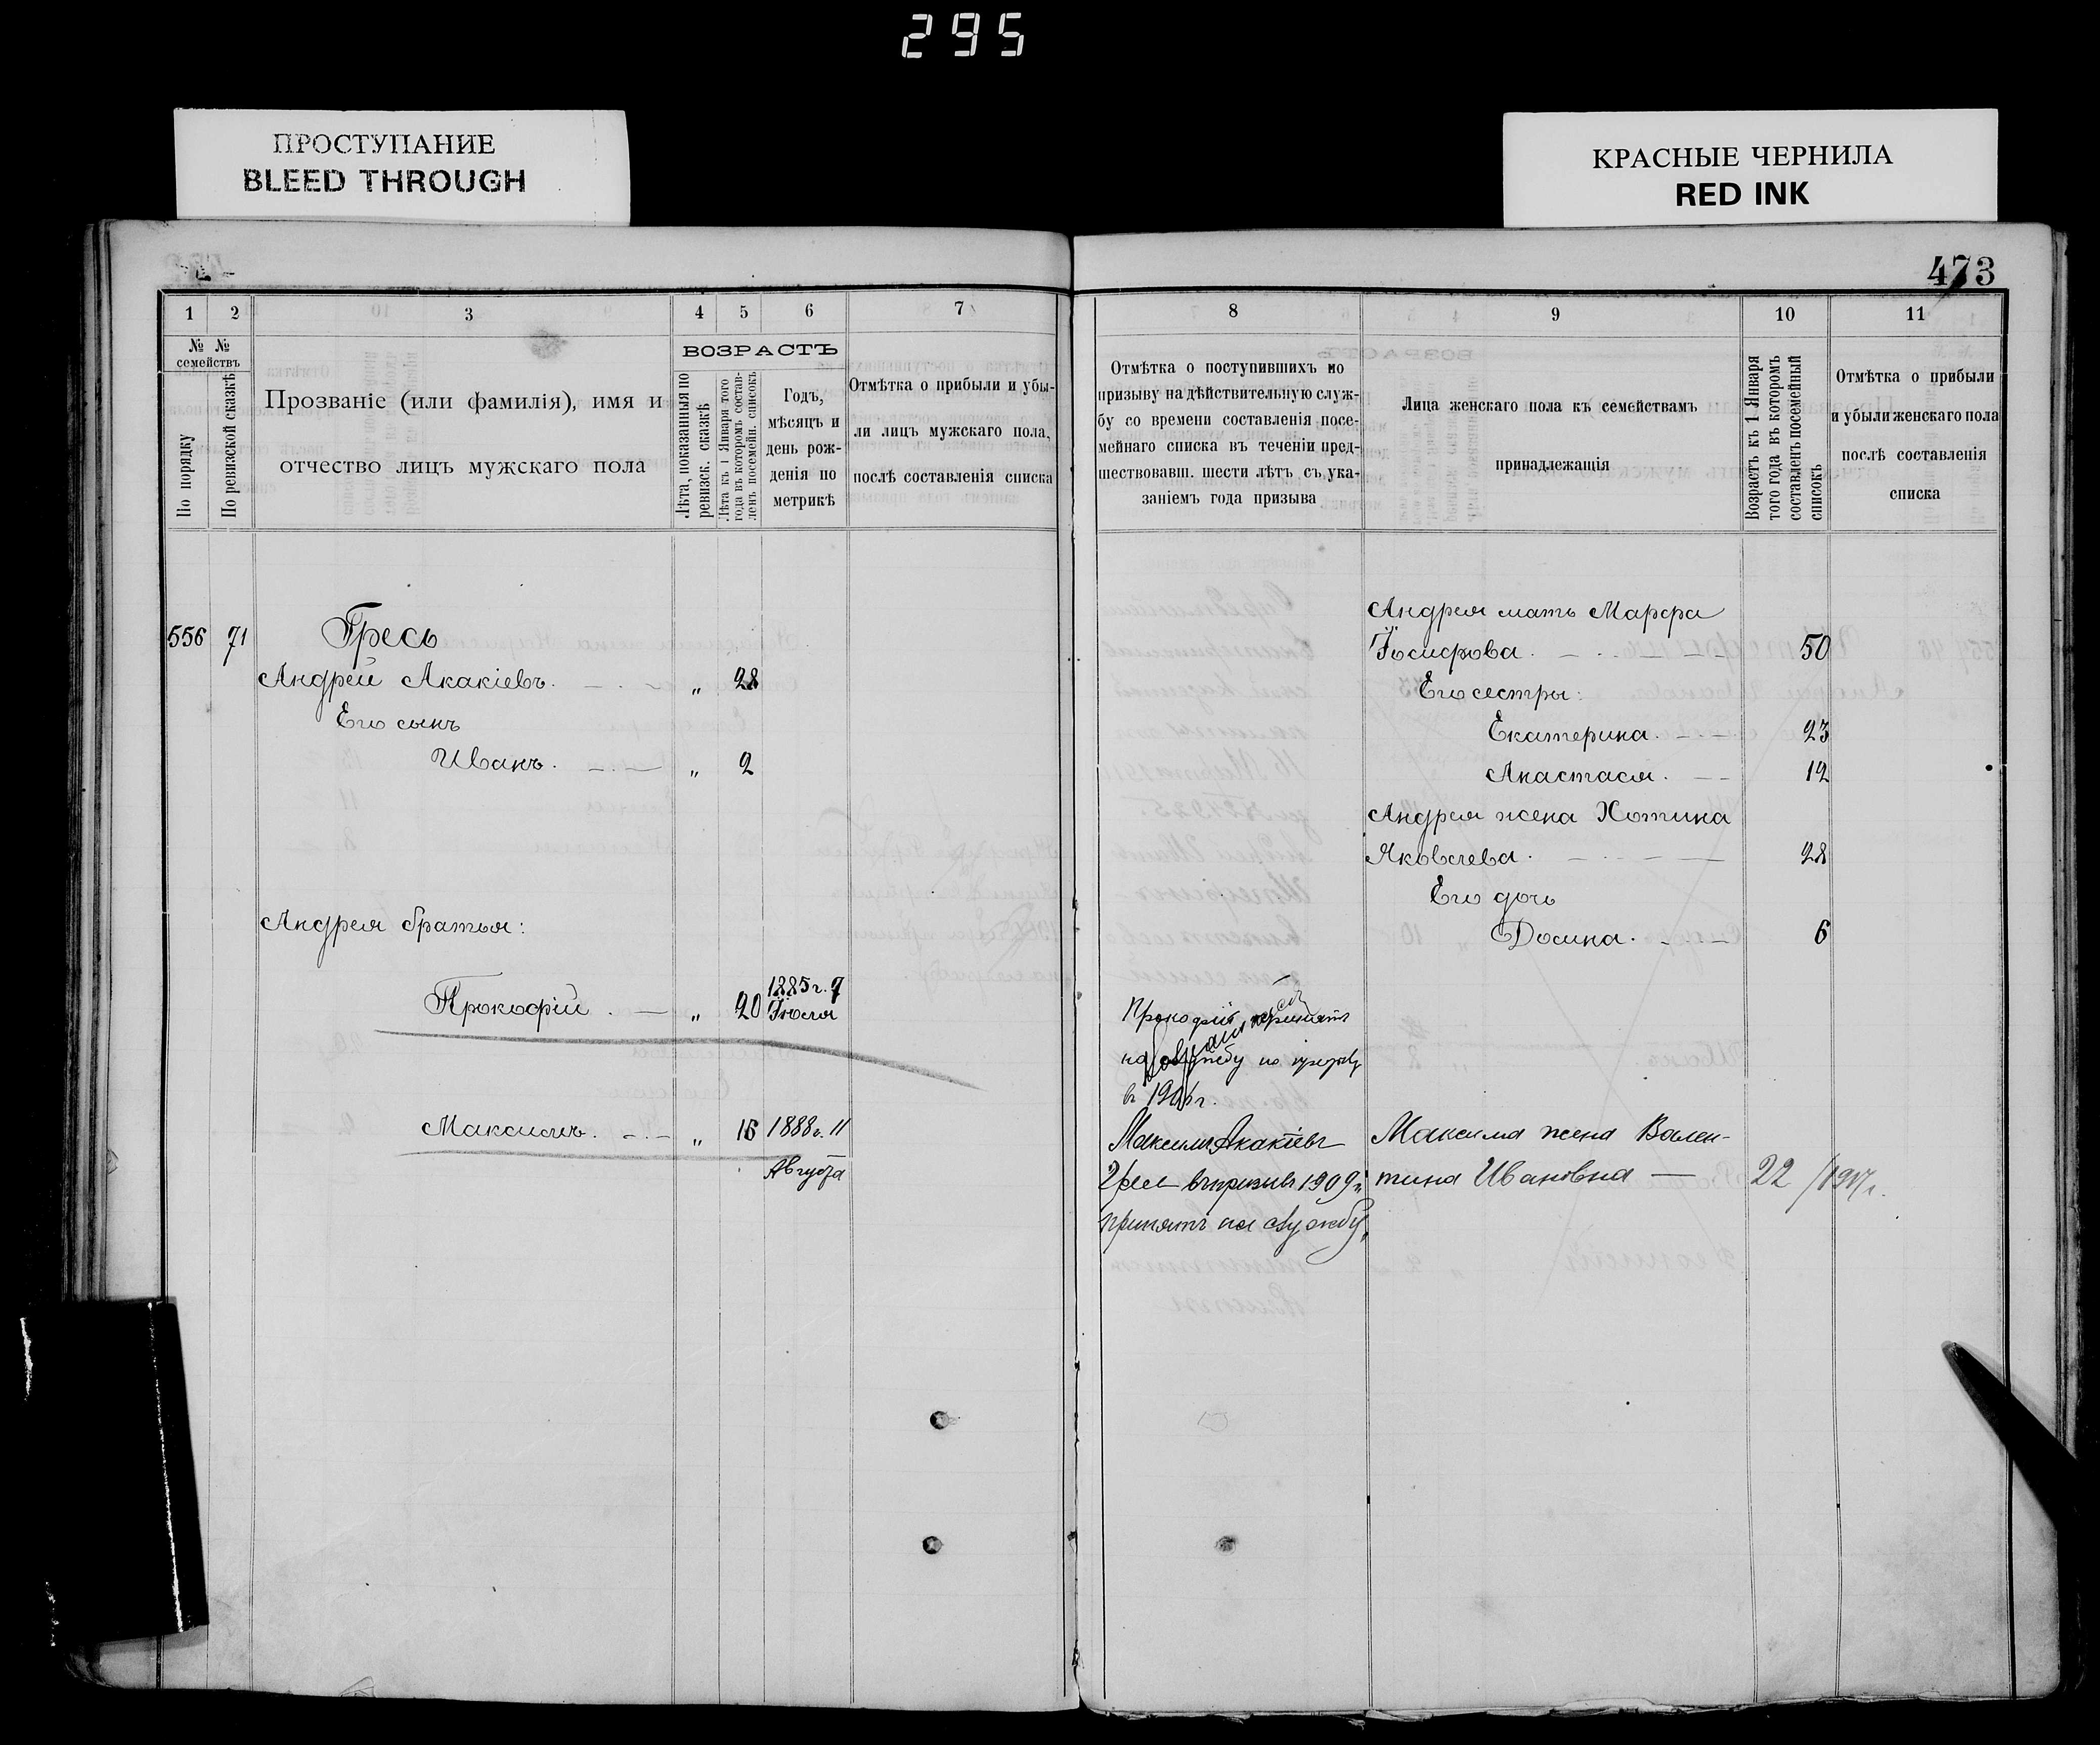 295
ПРОСТУПАНИЕ
BLEED THROUGH
КРАСНЫЕ ЧЕРНИЛА
RED INK
473
1 2 3 4 5 6 7
№ № семействъ
По порядку
По ревизской сказкѣ
Прозваніе (или фамилія), имя и
отчество лицъ мужскаго пола
ВОЗРАСТЪ
Лѣта, показанныя по
ревизск. сказкѣ
Лѣта къ 1 Января того
года въ которомъ состав-
ленъ посемейн. списокъ
Годъ,
мѣсяцъ и
день рож-
денія по
метрикѣ
Отмѣтка о прибыли и убы-
ли лицъ мужскаго пола,
послѣ составленія списка
556 71 Гресь
Андрей Акакіевъ. „ 28
Его сынъ
Иванъ. „ 2
Андрея братья:
1885 г. 9
Прокофій. „ 20 Іюля
Максимъ. „ 16 1888 г. 11
Августа
8 9 10 11
Отмѣтка о поступившихъ по
призыву на дѣйствительную служ-
бу со времени составленія посе-
мейнаго списка въ теченіи пред-
шествовавш. шести лѣтъ съ ука-
заніемъ года призыва
Лица женскаго пола къ семействамъ
принадлежащія
Возрастъ къ 1 Января
того года въ которомъ
составленъ посемейный
списокъ
Отмѣтка о прибыли
и убыли женскаго пола
послѣ составленія
списка
Андрея мать Марфа
Іосифова. 50
Его сестры:
Екатерина. 23
Анастасія. 12
Андрея жена Хотина
Яковлева. 28
Его дочь
Досина. 6
Прокофій принятъ
на службу по призыву
в 190 г.
Максимъ Акакіевъ
Гресь въ призывъ 1909 г.
принятъ на службу.
Максима жена Вален-
тина Ивановна — 22